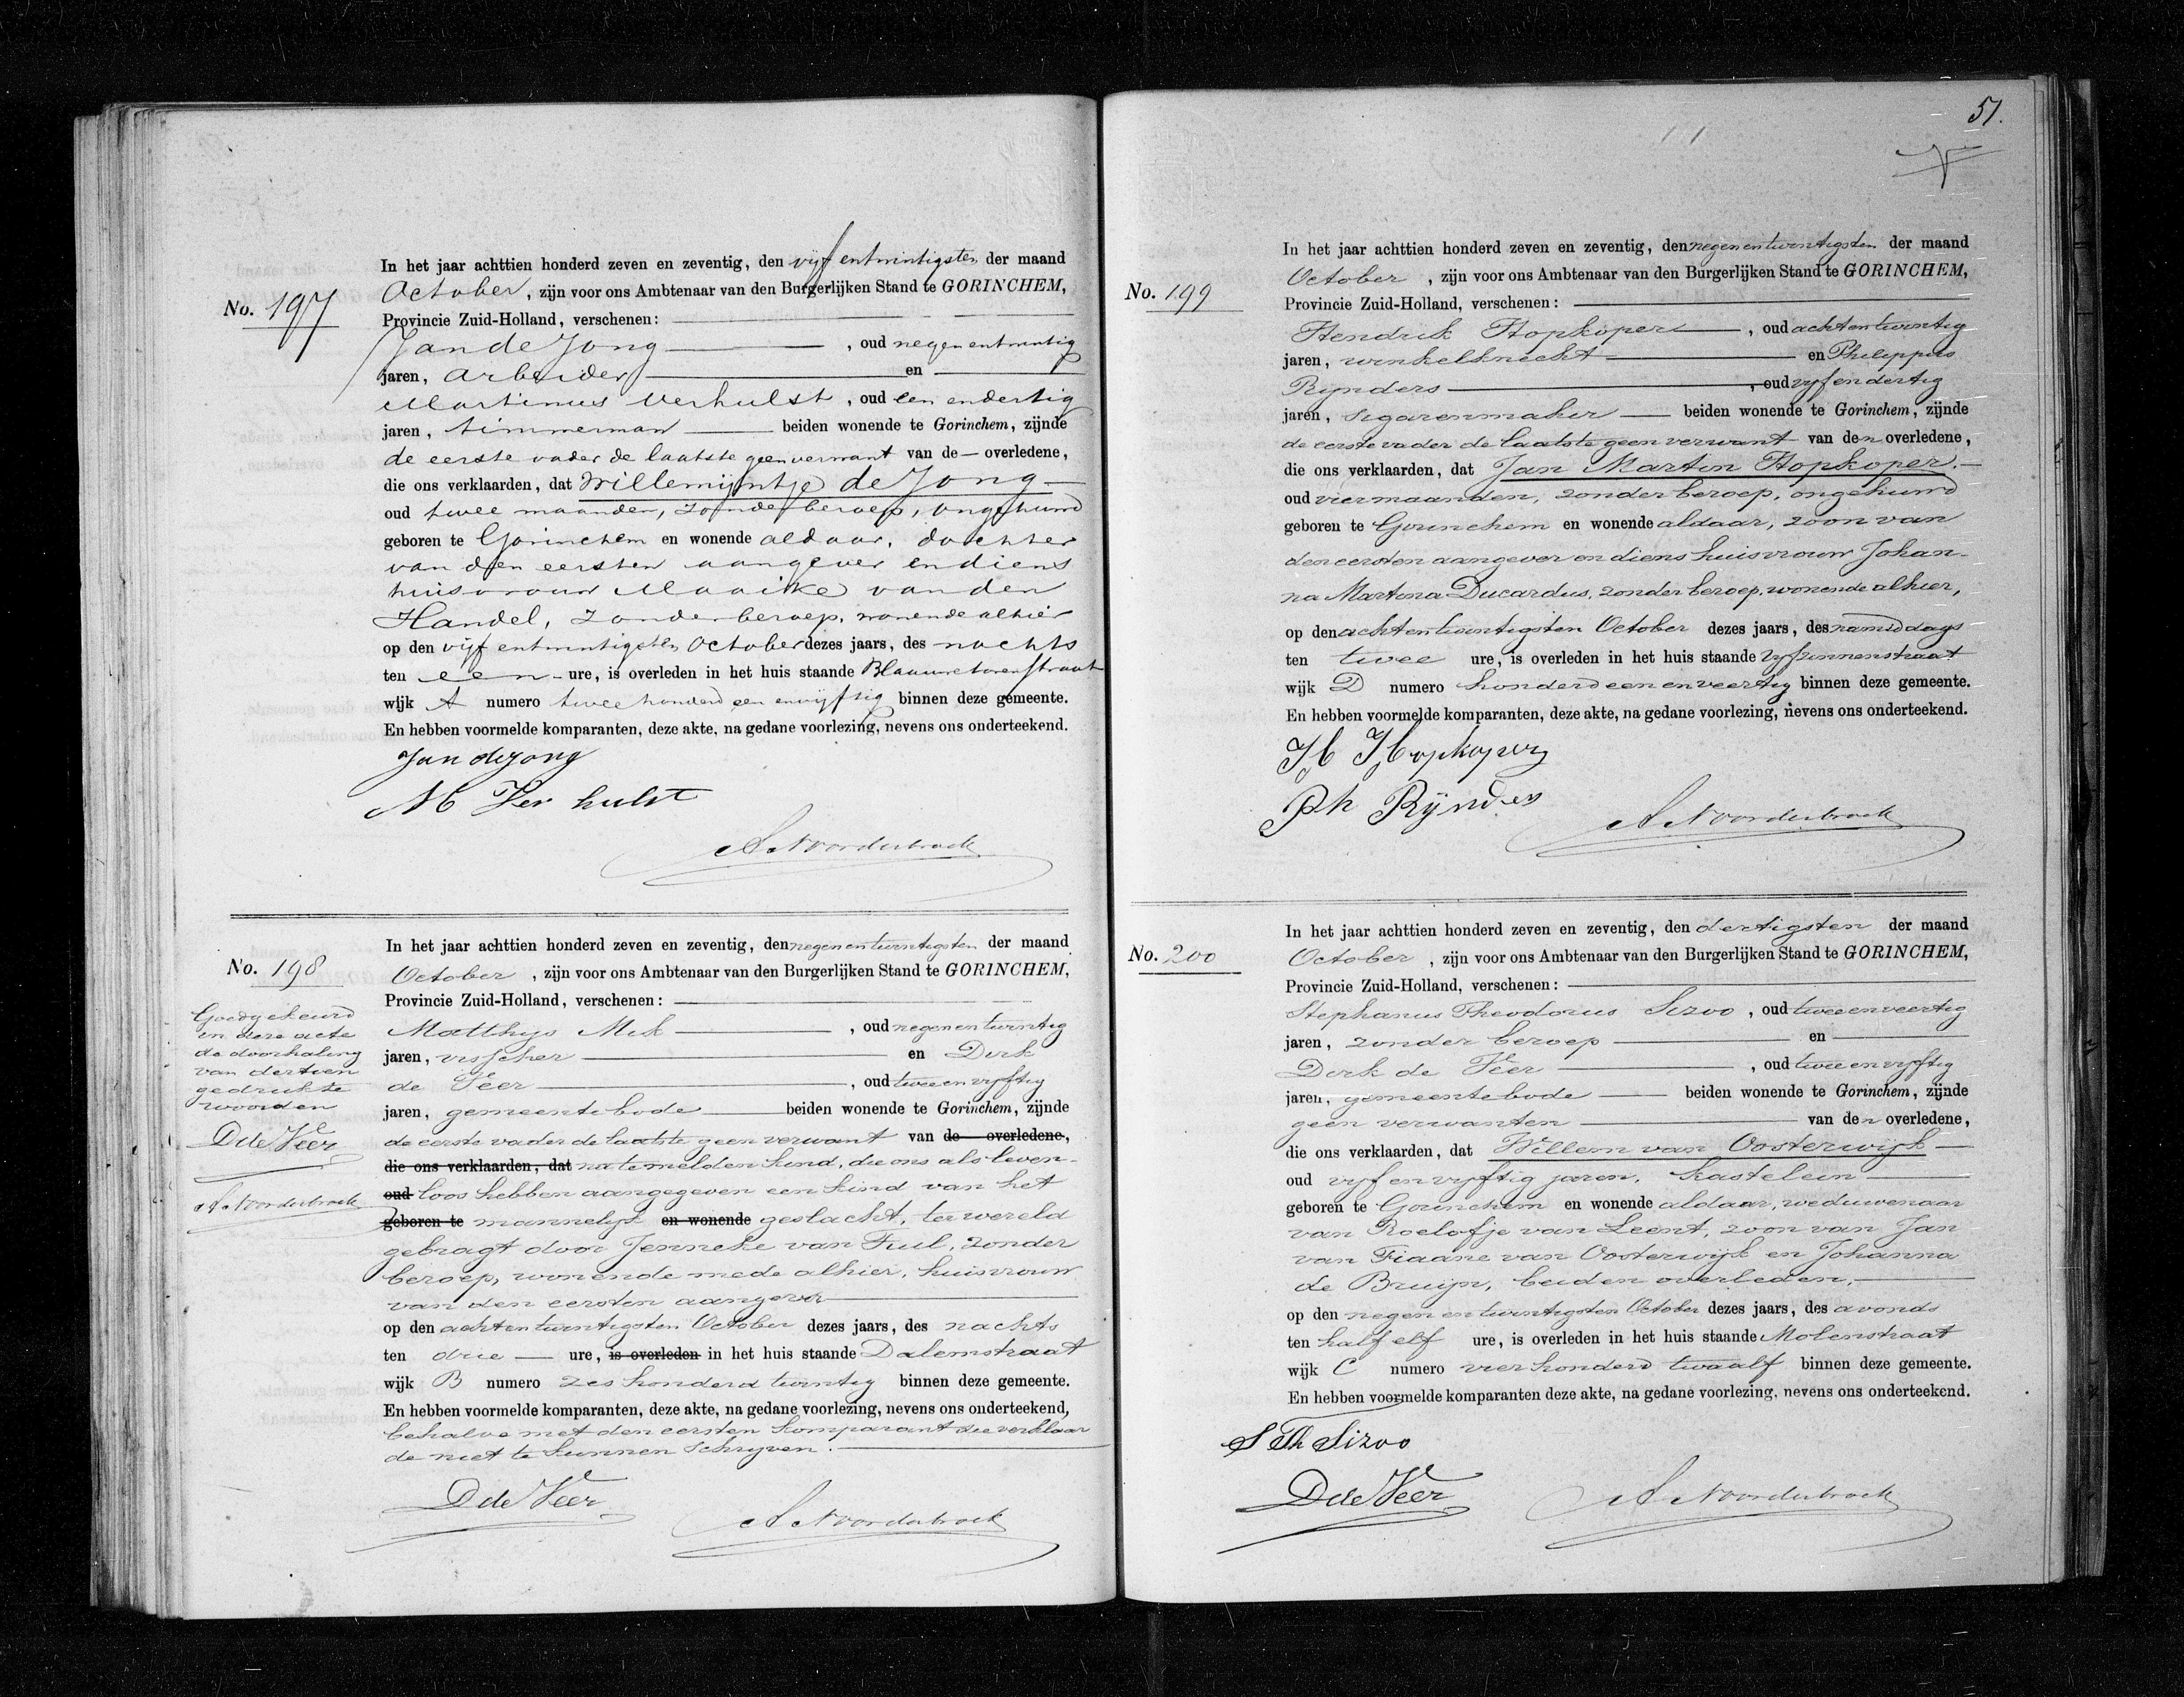 No. 197
In het jaar achttien honderd zeven en zeventig, den vijf entwintigsten der maand
October, zijn voor ons Ambtenaar van den Burgerlijken Stand te GORINCHEM,
Provincie Zuid-Holland, verschenen:
Jan de Jong, oud negen entwintig
jaren, arbeider en
Martinus Verhulst, oud een endertig
jaren, timmerman beiden wonende te Gorinchem, zijnde
de eerste vader de laatste geen verwant van de overledene,
die ons verklaarden, dat Willemijntje de Jong
oud twee maanden, zonder beroep, ongehuwd
geboren te Gorinchem en wonende aldaar, dochter
van den eersten aangever en diens
huisvrouw Maaike van den
Handel, zonder beroep, wonende alhier
op den vijf entwintigsten October dezes jaars, des nachts
ten een ure, is overleden in het huis staande Blaauwetorenstraat
wijk A numero twee honderd een envijftig binnen deze gemeente.
En hebben voormelde komparanten, deze akte, na gedane voorlezing, nevens ons onderteekend.
Jan de Jong
M Verhulst
A Noorderbroek
No. 198
Goedgekeurd
in deze acte
de doorhaling
van dertien
gedrukte
woorden
D de Veer
A Noorderbroek
In het jaar achttien honderd zeven en zeventig, den negenentwintigsten der maand
October, zijn voor ons Ambtenaar van den Burgerlijken Stand te GORINCHEM,
Provincie Zuid-Holland, verschenen:
Matthijs Mek, oud negenentwintig
jaren, visscher en Dirk
de Veer, oud tweeenvijftig
jaren, gemeentebode beiden wonende te Gorinchem, zijnde
de eerste vader de laatste geen verwant van de overledene,
die ons verklaarden, dat na te melden kind, die ons als leven-
oud loos hebben aangegeven een kind van het
geboren te mannelijk en wonende geslacht, ter wereld
gebragt door Jenneke van Tuil, zonder
beroep, wonende mede alhier, huisvrouw
van den eersten aangever
op den achtentwintigsten October dezes jaars, des nachts
ten drie ure, is overleden in het huis staande Dalemstraat
wijk B numero zes honderd twintig binnen deze gemeente.
En hebben voormelde komparanten, deze akte, na gedane voorlezing, nevens ons onderteekend,
behalve met den eersten komparant die verklaar
de niet te kunnen schrijven.
D de Veer
A Noorderbroek
51.
No. 199
In het jaar achttien honderd zeven en zeventig, den negenentwintigsten der maand
October, zijn voor ons Ambtenaar van den Burgerlijken Stand te GORINCHEM,
Provincie Zuid-Holland, verschenen:
Hendrik Hopkoper, oud achtentwintig
jaren, winkelknecht en Philippus
Rijnders, oud vijfendertig
jaren, sigarenmaker beiden wonende te Gorinchem, zijnde
de eerste vader de laatste geen verwant van den overledene,
die ons verklaarden, dat Jan Martin Hopkoper.
oud vier maanden, zonder beroep, ongehuwd
geboren te Gorinchem en wonende aldaar, zoon van
den eersten aangever en diens huisvrouw Johan-
na Martina Ducardus, zonder beroep, wonende alhier,
op den achtentwintigsten October dezes jaars, des namiddags
ten twee ure, is overleden in het huis staande Vijzinnenstraat
wijk D numero honderd eenenveertig binnen deze gemeente.
En hebben voormelde komparanten, deze akte, na gedane voorlezing, nevens ons onderteekend.
H Hopkoper
Ph Rijnders
A Noorderbroek
No. 200
In het jaar achttien honderd zeven en zeventig, den dertigsten der maand
October, zijn voor ons Ambtenaar van den Burgerlijken Stand te GORINCHEM,
Provincie Zuid-Holland, verschenen:
Stephanus Theodorus Sizoo, oud tweeenveertig
jaren, zonder beroep en
Dirk de Veer, oud tweeenvijftig
jaren, gemeentebode beiden wonende te Gorinchem, zijnde
geen verwanten van den overledene,
die ons verklaarden, dat Willem van Oosterwijk
oud vijfenvijftig jaren, kastelein
geboren te Gorinchem en wonende aldaar, weduwenaar
van Roelofje van Leent, zoon van Jan
van Tiaane van Oosterwijk en Johanna
de Bruijn, beiden overleden.
op den negenentwintigsten October dezes jaars, des avonds
ten half elf ure, is overleden in het huis staande Molenstraat
wijk C numero vier honderd twaalf binnen deze gemeente.
En hebben voormelde komparanten deze akte, na gedane voorlezing, nevens ons onderteekend.
S Th Sizoo
D de Veer
A Noorderbroek